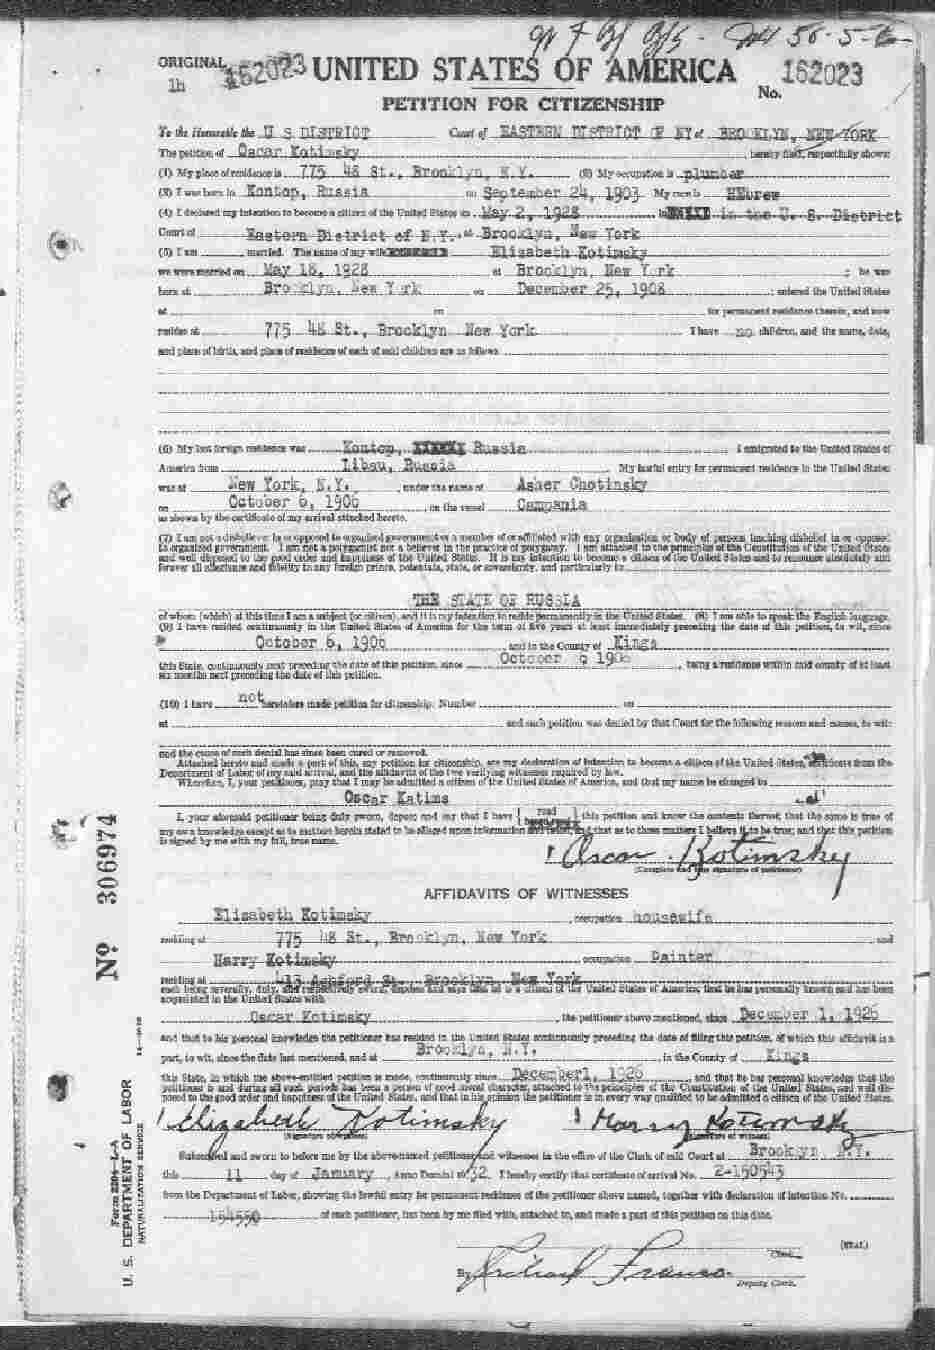 ORIGINAL 162023 UNITED STATES OF AMERICA No. 162023
1h
PETITION FOR CITIZENSHIP
To the Honorable the U S DISTRICT Court of EASTERN DISTRICT OF NY at BROOKLYN, NEW YORK
The petition of Oscar Kotimsky , hereby filed, respectfully shows:
(1) My place of residence is 775 48 St., Brooklyn, N.Y. (2) My occupation is plumber
(3) I was born in Kontop, Russia on September 24, 1903 My race is HEbrew
(4) I declared my intention to become a citizen of the United States on May 2, 1928 in the U. S. District
Court of Eastern District of N.Y. at Brooklyn, New York
(5) I am married. The name of my wife Elizabeth Kotimsky
we were married on May 18, 1928 at Brooklyn, New York ; he was
born at Brooklyn, New York on December 25, 1908 ; entered the United States
at on for permanent residence therein, and now
resides at 775 48 St., Brooklyn New York I have no children, and the name, date,
and place of birth, and place of residence of each of said children are as follows
(6) My last foreign residence was Kontop, Russia I emigrated to the United States of
America from Libau, Russia My lawful entry for permanent residence in the United States
was at New York, N.Y. under the name of Asher Chotinsky
on October 6, 1906 on the vessel Campania
as shown by the certificate of my arrival attached hereto.
(7) I am not a disbeliever in or opposed to organized government or a member of or affiliated with any organization or body of persons teaching disbelief in or opposed
to organized government. I am not a polygamist nor a believer in the practice of polygamy. I am attached to the principles of the Constitution of the United States
and well disposed to the good order and happiness of the United States. It is my intention to become a citizen of the United States and to renounce absolutely and
forever all allegiance and fidelity to any foreign prince, potentate, state, or sovereignty, and particularly to
THE STATE OF RUSSIA
of whom (which) at this time I am a subject (or citizen), and it is my intention to reside permanently in the United States. (8) I am able to speak the English language.
(9) I have resided continuously in the United States of America for the term of five years at least immediately preceding the date of this petition, to wit, since
October 6, 1906 and in the County of Kings
this State, continuously next preceding the date of this petition, since October 6 1906 , being a residence within said county of at least
six months next preceding the date of this petition.
(10) I have not heretofore made petition for citizenship: Number on
at and such petition was denied by that Court for the following reasons and causes, to wit:
and the cause of such denial has since been cured or removed.
Attached hereto and made a part of this, my petition for citizenship, are my declaration of intention to become a citizen of the United States, certificate from the
Department of Labor of my said arrival, and the affidavits of the two verifying witnesses required by law.
Wherefore, I, your petitioner, pray that I may be admitted a citizen of the United States of America, and that my name be changed to
Oscar Katims
I, your aforesaid petitioner being duly sworn, depose and say that I have read this petition and know the contents thereof; that the same is true of
my own knowledge except as to matters herein stated to be alleged upon information and belief, and that as to those matters I believe it to be true; and that this petition
is signed by me with my full, true name.
Oscar Kotimsky
(Complete and true signature of petitioner)
AFFIDAVITS OF WITNESSES
Elizabeth Kotimsky , occupation housewife
residing at 775 48 St., Brooklyn, New York and
Harry Kotimsky occupation Painter
residing at 413 Ashford St. Brooklyn New York
each being severally, duly, and respectively sworn, deposes and says that he is a citizen of the United States of America; that he has personally known and has been
acquainted in the United States with
Oscar Kotimsky , the petitioner above mentioned, since December 1, 1926
and that to his personal knowledge the petitioner has resided in the United States continuously preceding the date of filing this petition, of which this affidavit is a
part, to wit, since the date last mentioned, and at Brooklyn, N.Y. , in the County of Kings
this State, in which the above-entitled petition is made, continuously since December1, 1926 , and that he has personal knowledge that the
petitioner is and during all such periods has been a person of good moral character, attached to the principles of the Constitution of the United States, and well dis-
posed to the good order and happiness of the United States, and that in his opinion the petitioner is in every way qualified to be admitted a citizen of the United States.
Elizabeth Kotimsky Harry Kotimsky
(Signature of witness) (Signature of witness)
Subscribed and sworn to before me by the above-named petitioner and witnesses in the office of the Clerk of said Court at Brooklyn, N.Y.
this 11 day of January , Anno Domini 1932. I hereby certify that certificate of arrival No. 2-150543
from the Department of Labor, showing the lawful entry for permanent residence of the petitioner above named, together with declaration of intention No.
154550 of such petitioner, has been by me filed with, attached to, and made a part of this petition on this date.
Clerk. (SEAL)
By
Deputy Clerk.
No 306974
Form 2204-L-A
U. S. DEPARTMENT OF LABOR
NATURALIZATION SERVICE